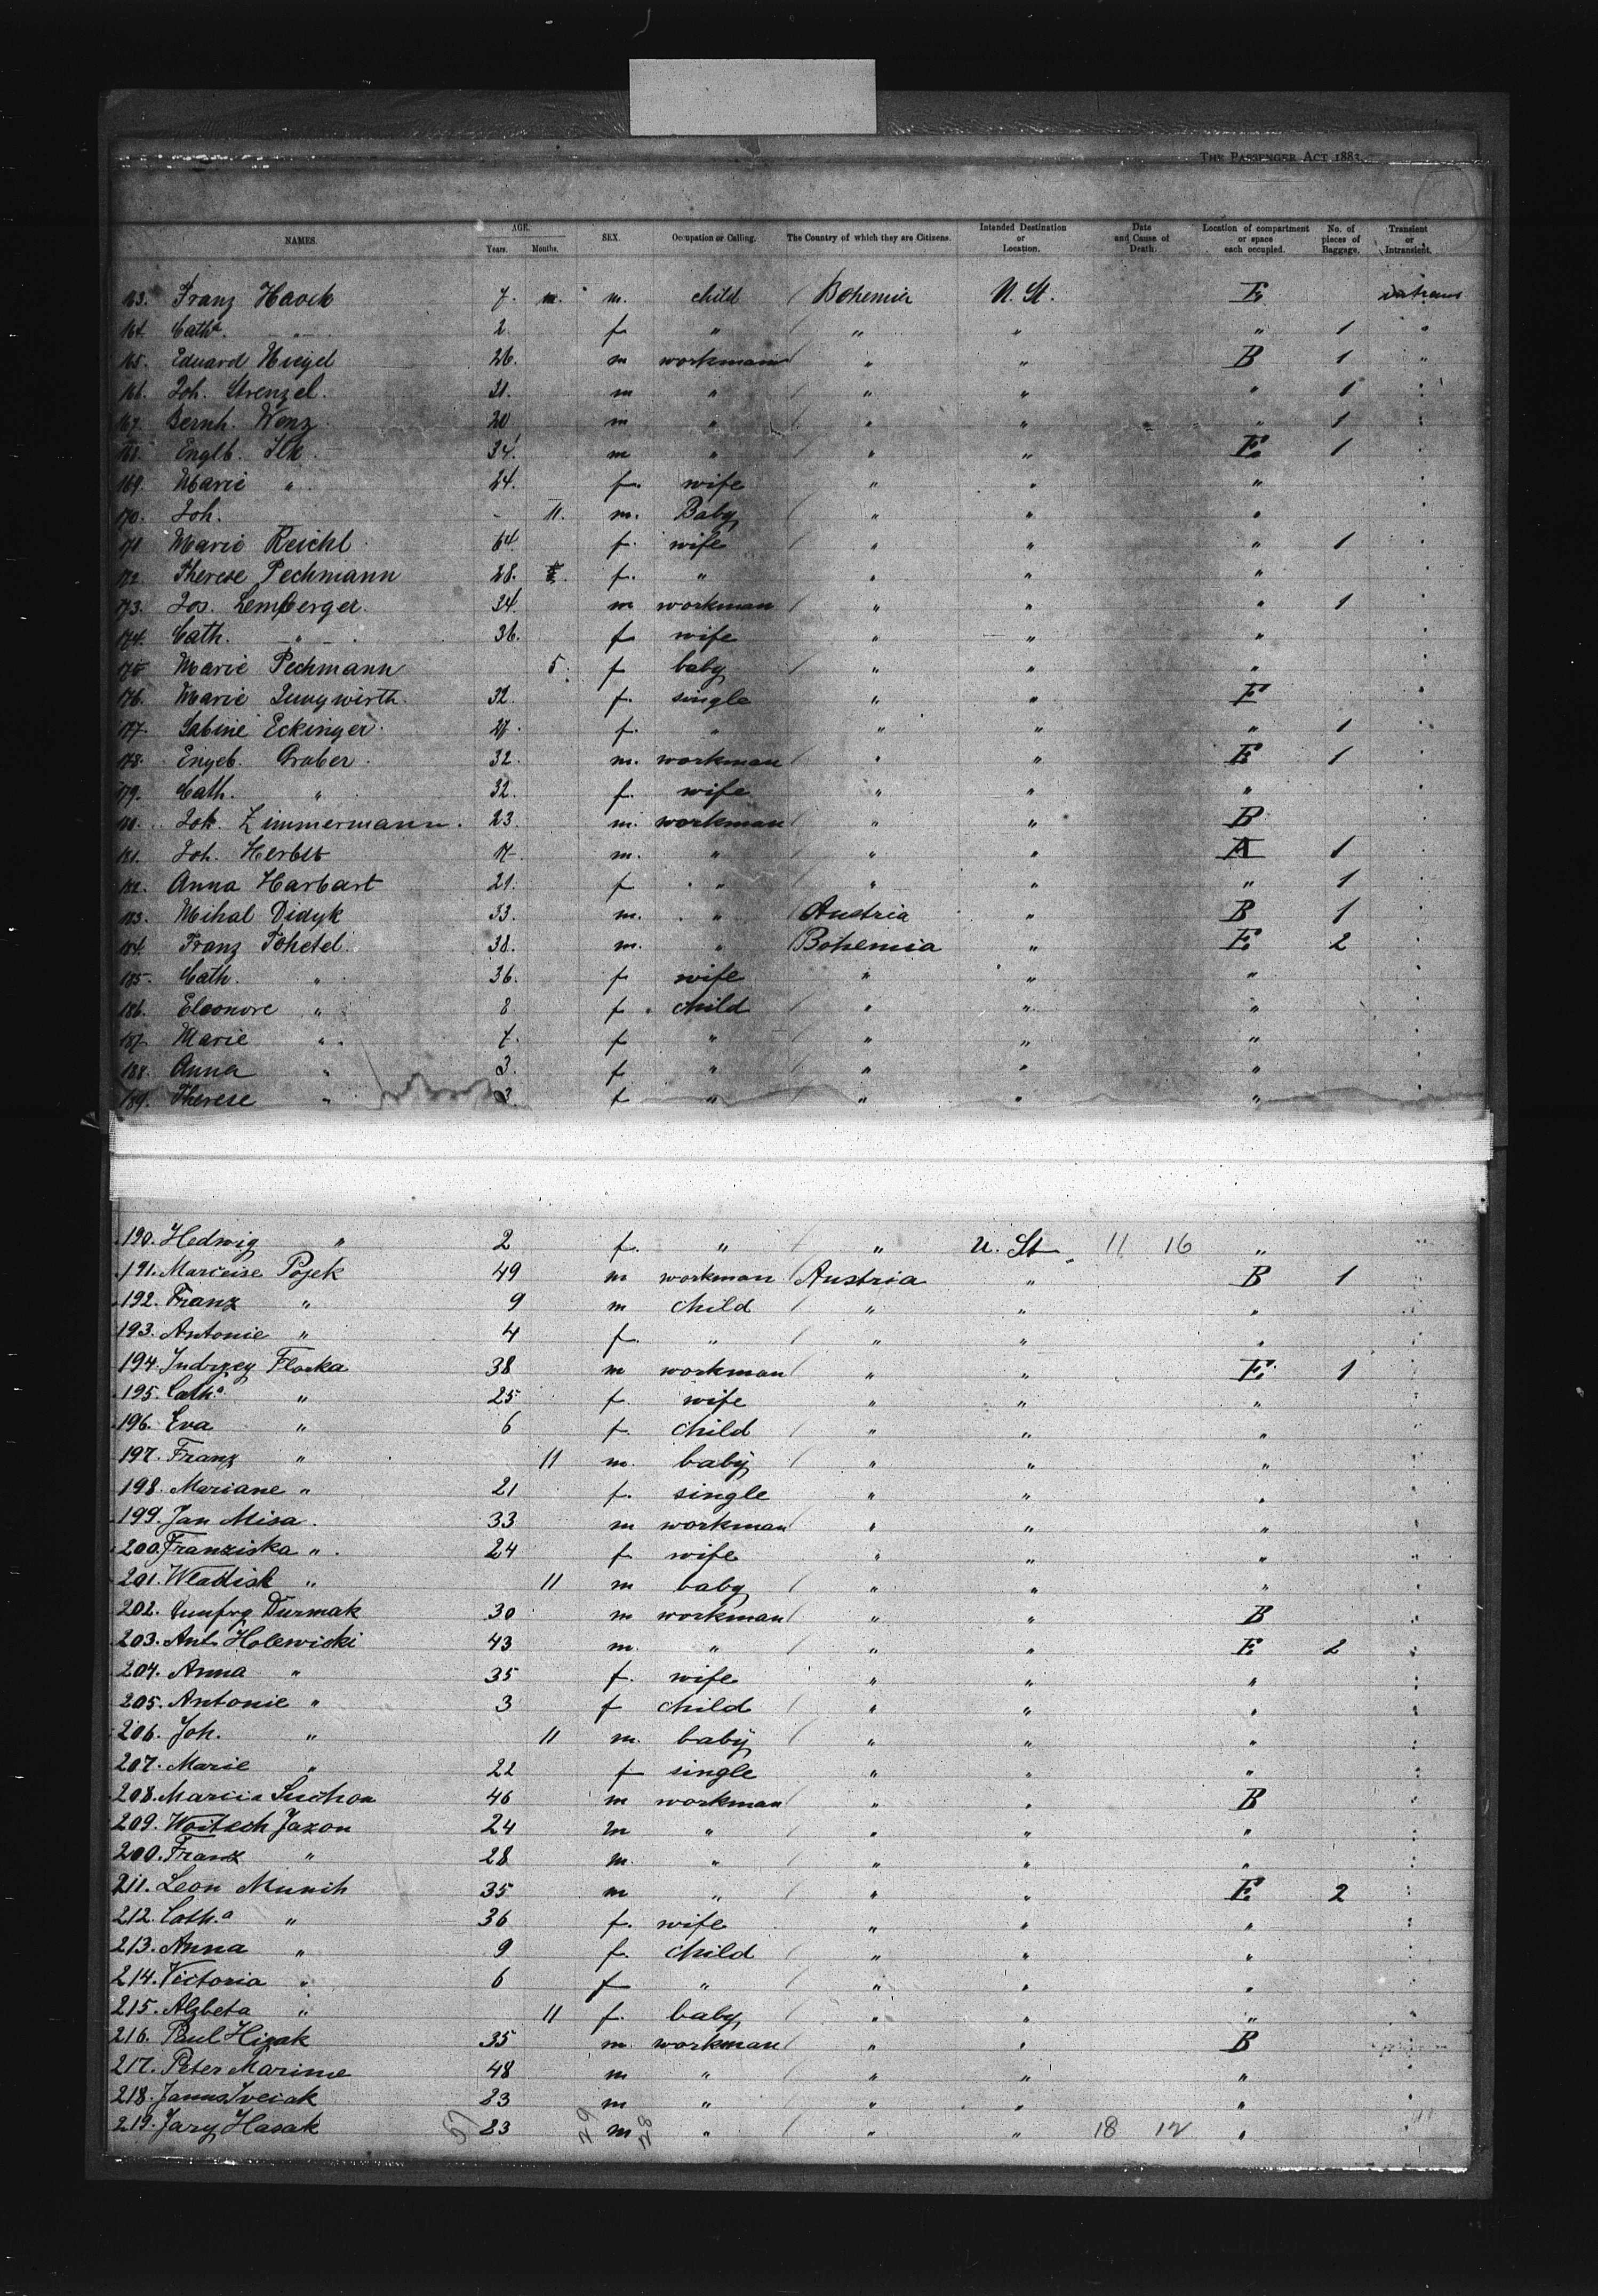 THE PASSENGER ACT 1882.
NAMES. AGE. Years. Months. SEX. Occupation or Calling. The Country of which they are Citizens. Intended Destination or Location. Date and Cause of Death. Location of compartment or space each occupied. No. of pieces of Baggage. Transient or Intransient.
163. Franz Havek 7. m. m. child / Bohemia U. St. E. intrans
164. Cath.a " 2 f " / " " " 1 "
165. Eduard Hiegel 26. m workman / " " B 1 "
166. Joh. Strenzel. 31. m " / " " " 1 "
167. Bernh. Wenz 20 m " / " " " 1 "
168. Englb. Ilk 34. m " / " " E. 1 "
169. Marie " 24. f. wife " " " "
170. Joh. - 11. m. Baby / " " " "
171 Marie Reichl 64. f. wife / " " " 1 "
172. Therese Pechmann 28. f. " " " " "
173. Jos. Lemberger. 34. m workman / " " " 1 "
174. Cath. " 36. f wife " " " "
175 Marie Pechmann 5. f baby / " " " "
176. Marie Jungwirth. 32. f. single " " E "
177. Sabine Eckinger. 27. f. " " " " 1 "
178. Engeb. Graber. 32. m. workman / " " E 1 "
179. Cath. " 32. f. wife " " " "
180. Joh. Zimmermann. 23. m. workman / " " B "
181. Joh. Herbst 17. m. " / " " A 1 "
182. Anna Harbart 21. f " / " " " 1 "
183. Mihal Didyk 33. m. " / Austria " B 1 "
184. Franz Tohetel 38. m. " Bohemia " E. 2 "
185. Cath. " 36. f wife " " " "
186. Eleonore " 8 f child / " " " "
187. Marie " 7. f " / " " " "
188. Anna " 3. f " / " " " "
189. Therese " 3. f " / " " " "
190. Hedwig " 2 f. " / " U. St. 11 16 " "
191. Marcise Pojek 49 m workman / Austria " B 1 "
192. Franz " 9 m child / " " " "
193. Antonie " 4 f. " / " " " "
194. Indrzey Florka 38 m workman / " " E. 1 "
195. Cath.a " 25 f. wife " " " "
196. Eva " 6 f. child / " " " "
197. Franz " 11 m. baby / " " " "
198. Mariane " 21 f. single " " " "
199. Jan Misa. 33 m workman / " " " "
200. Franziska " 24 f wife " " " "
201. Wladisk " 11 m baby / " " " "
202. Durmak 30 m workman / " " B "
203. Ant. Holewicki 43 m. " / " " E. 2 "
204. Anna " 35 f. wife " " " "
205. Antonie " 3 f child / " " " "
206. Joh. " 11 m. baby / " " " "
207. Marie " 22 f single " " " "
208. Marcia Suchon 46 m workman / " " B "
209. Woitech Jazon 24 m " / " " " "
200. Franz " 28 m. " / " " " "
211. Leon Munih 35 m " / " " E 2 "
212. Cath.a " 36 f. wife " " " "
213. Anna " 9 f. child / " " " "
214. Victoria " 6 f " / " " " "
215. Alzbeta " 11 f. baby / " " " "
216. Paul Hizak 35 m. workman / " " B
217. Peter Marime 48 m " / " " " "
218. Janus Sveiak 23 m " / " " " "
219. Jary Hasak 57 23 29 m 28 " / " " 18 12 "